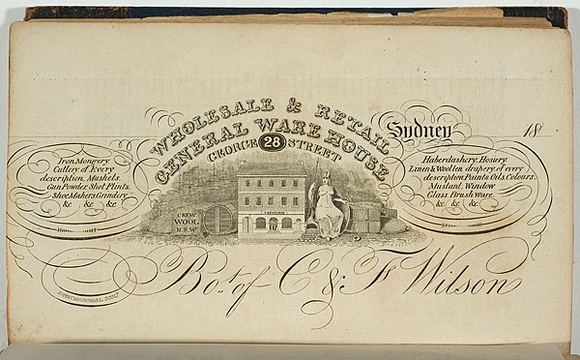 WHOLESALE & RETAIL
GENERAL WARE HOUSE
GEORGE 28 STREET
Sydney 18
Iron Mongery
Cutlery of Every
description, Muskets,
Gun Powder Shot Flints,
Shoe Makers Grindery
&c &c &c
Haberdashery, Hosiery
Linen & Woollen drapery of every
description, Paints, Oils, Colours,
Mustard, Window
Glass, Brush ware,
&c &c &c
C & F W
WOOL
N.S.W
Bot. of C & F Wilson